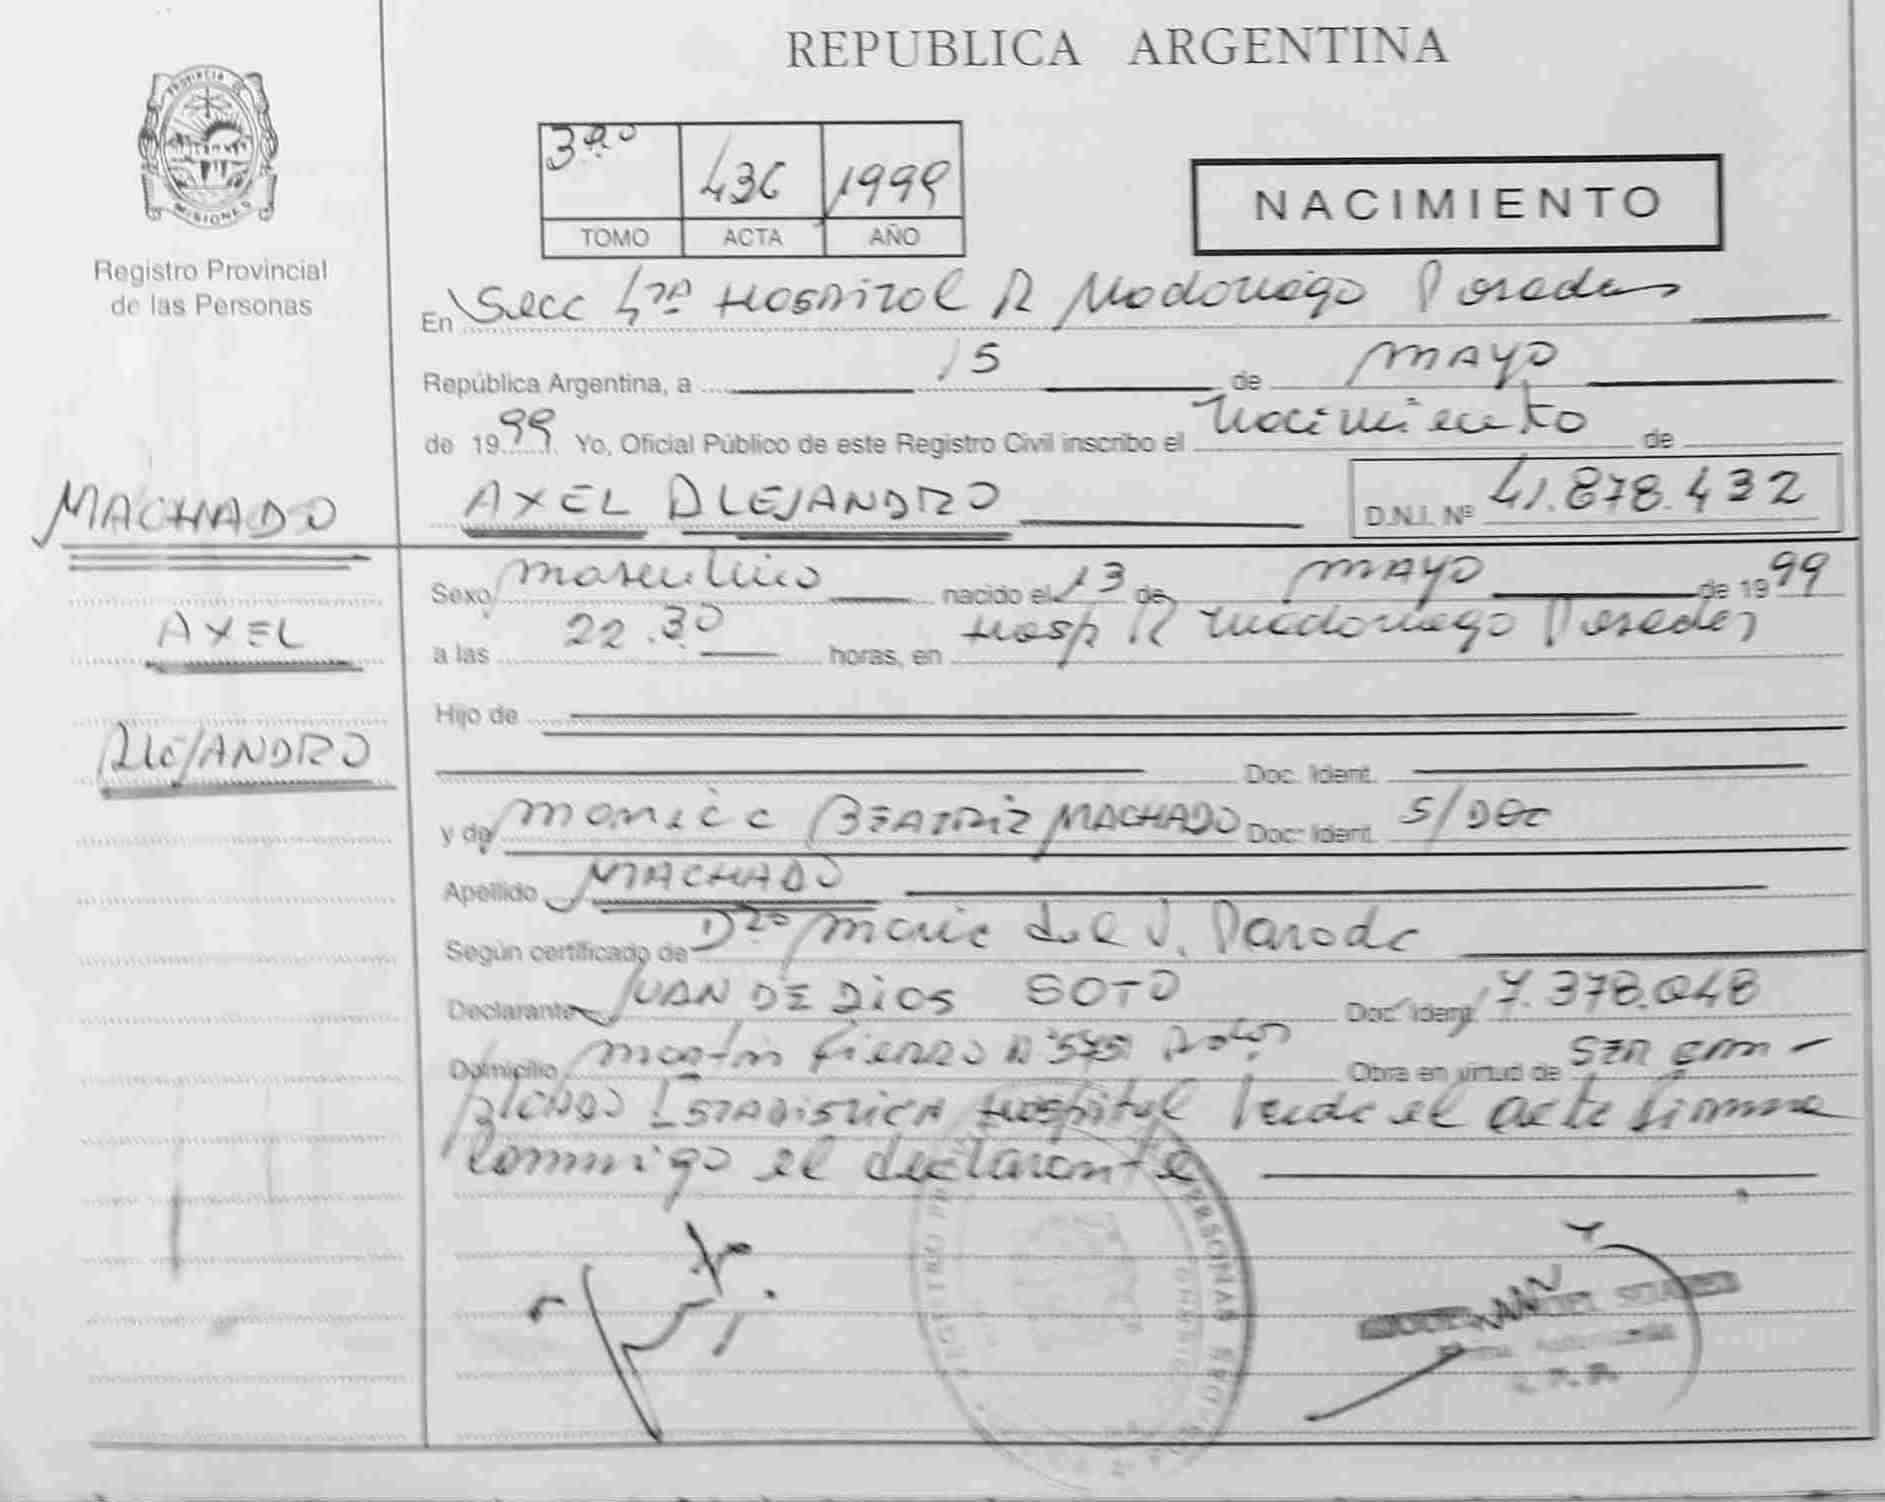 REPUBLICA ARGENTINA
PROVINCIA DE MISIONES
Registro Provincial
de las Personas
3ro 436 1999
TOMO ACTA AÑO
NACIMIENTO
En Secc 4ta Hospital R Madariaga Posadas
República Argentina, a 15 de MAYO
de 1999 Yo, Oficial Público de este Registro Civil inscribo el Nacimiento de
MACHADO
AXEL ALEJANDRO D.N.I. Nº 41.878.432
Sexo masculino nacido el 13 de MAYO de 1999
AXEL
a las 22.30 horas, en Hosp R Madariaga Posadas
Hijo de
ALEJANDRO
Doc. Ident.
y de Monica BEATRIZ MACHADO Doc. Ident. S/DOC
Apellido MACHADO
Según certificado de Dra Maria del V. Paroda
Declarante JUAN DE DIOS SOTO Doc. Ident. 7.378.048
Domicilio Martin Fierro Nº Obra en virtud de SER EM-
PLEADO ESTADISTICA Hospital Leida el acta firma
conmigo el declarante